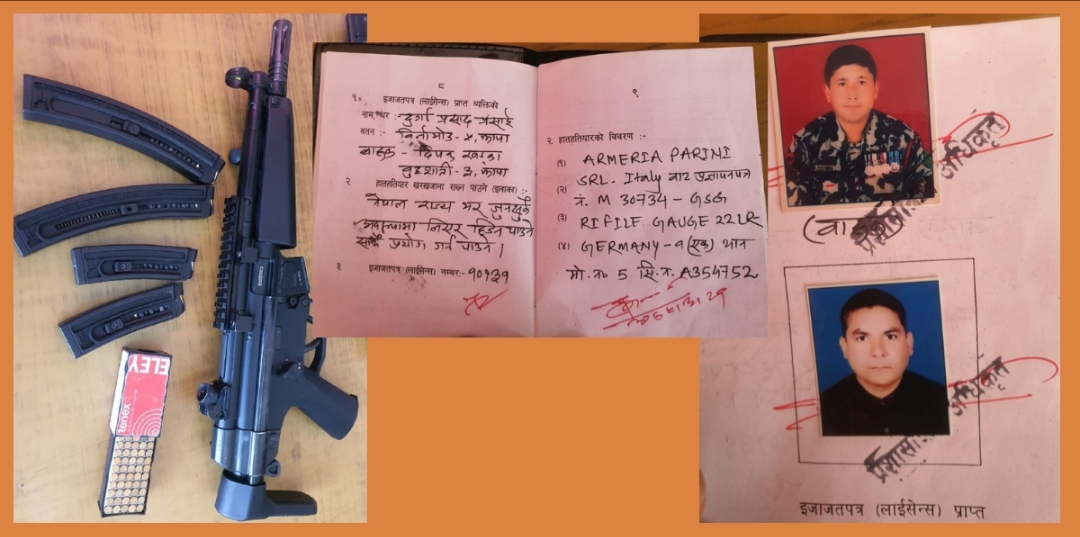 ELEY
tenex
८
१. इजाजतपत्र (लाईसेन्स) प्राप्त व्यक्तिको
नाम थर :- दुर्गा प्रसाद प्रसाई
वतन :- बिर्तामोड - ५, झापा
बाहक -
बुद्धशान्ती - ३, झापा
२ हातहतियार खरखजाना राख्न पाउने (इलाका) :-
नेपाल राज्य भर जुनसुकै
हिड्न पाउने
साथै प्रयोग गर्न पाउने ।
३ इजाजतपत्र (लाईसेन्स) नम्बर:- १०१३१
९
२. हातहतियारको विवरण :-
(१) ARMERIA PARINI
(२) SRL. Italy बाट
नं. M 30734 - GSG
(३) RIFILE GAUGE 22LR
(४) GERMANY - १ (एक) थान
मो. नं 5 सि. नं. A354752
प्रशासकीय अधिकृत
(बाहक)
प्रशासकीय अधिकृत
इजाजतपत्र (लाईसेन्स) प्राप्त